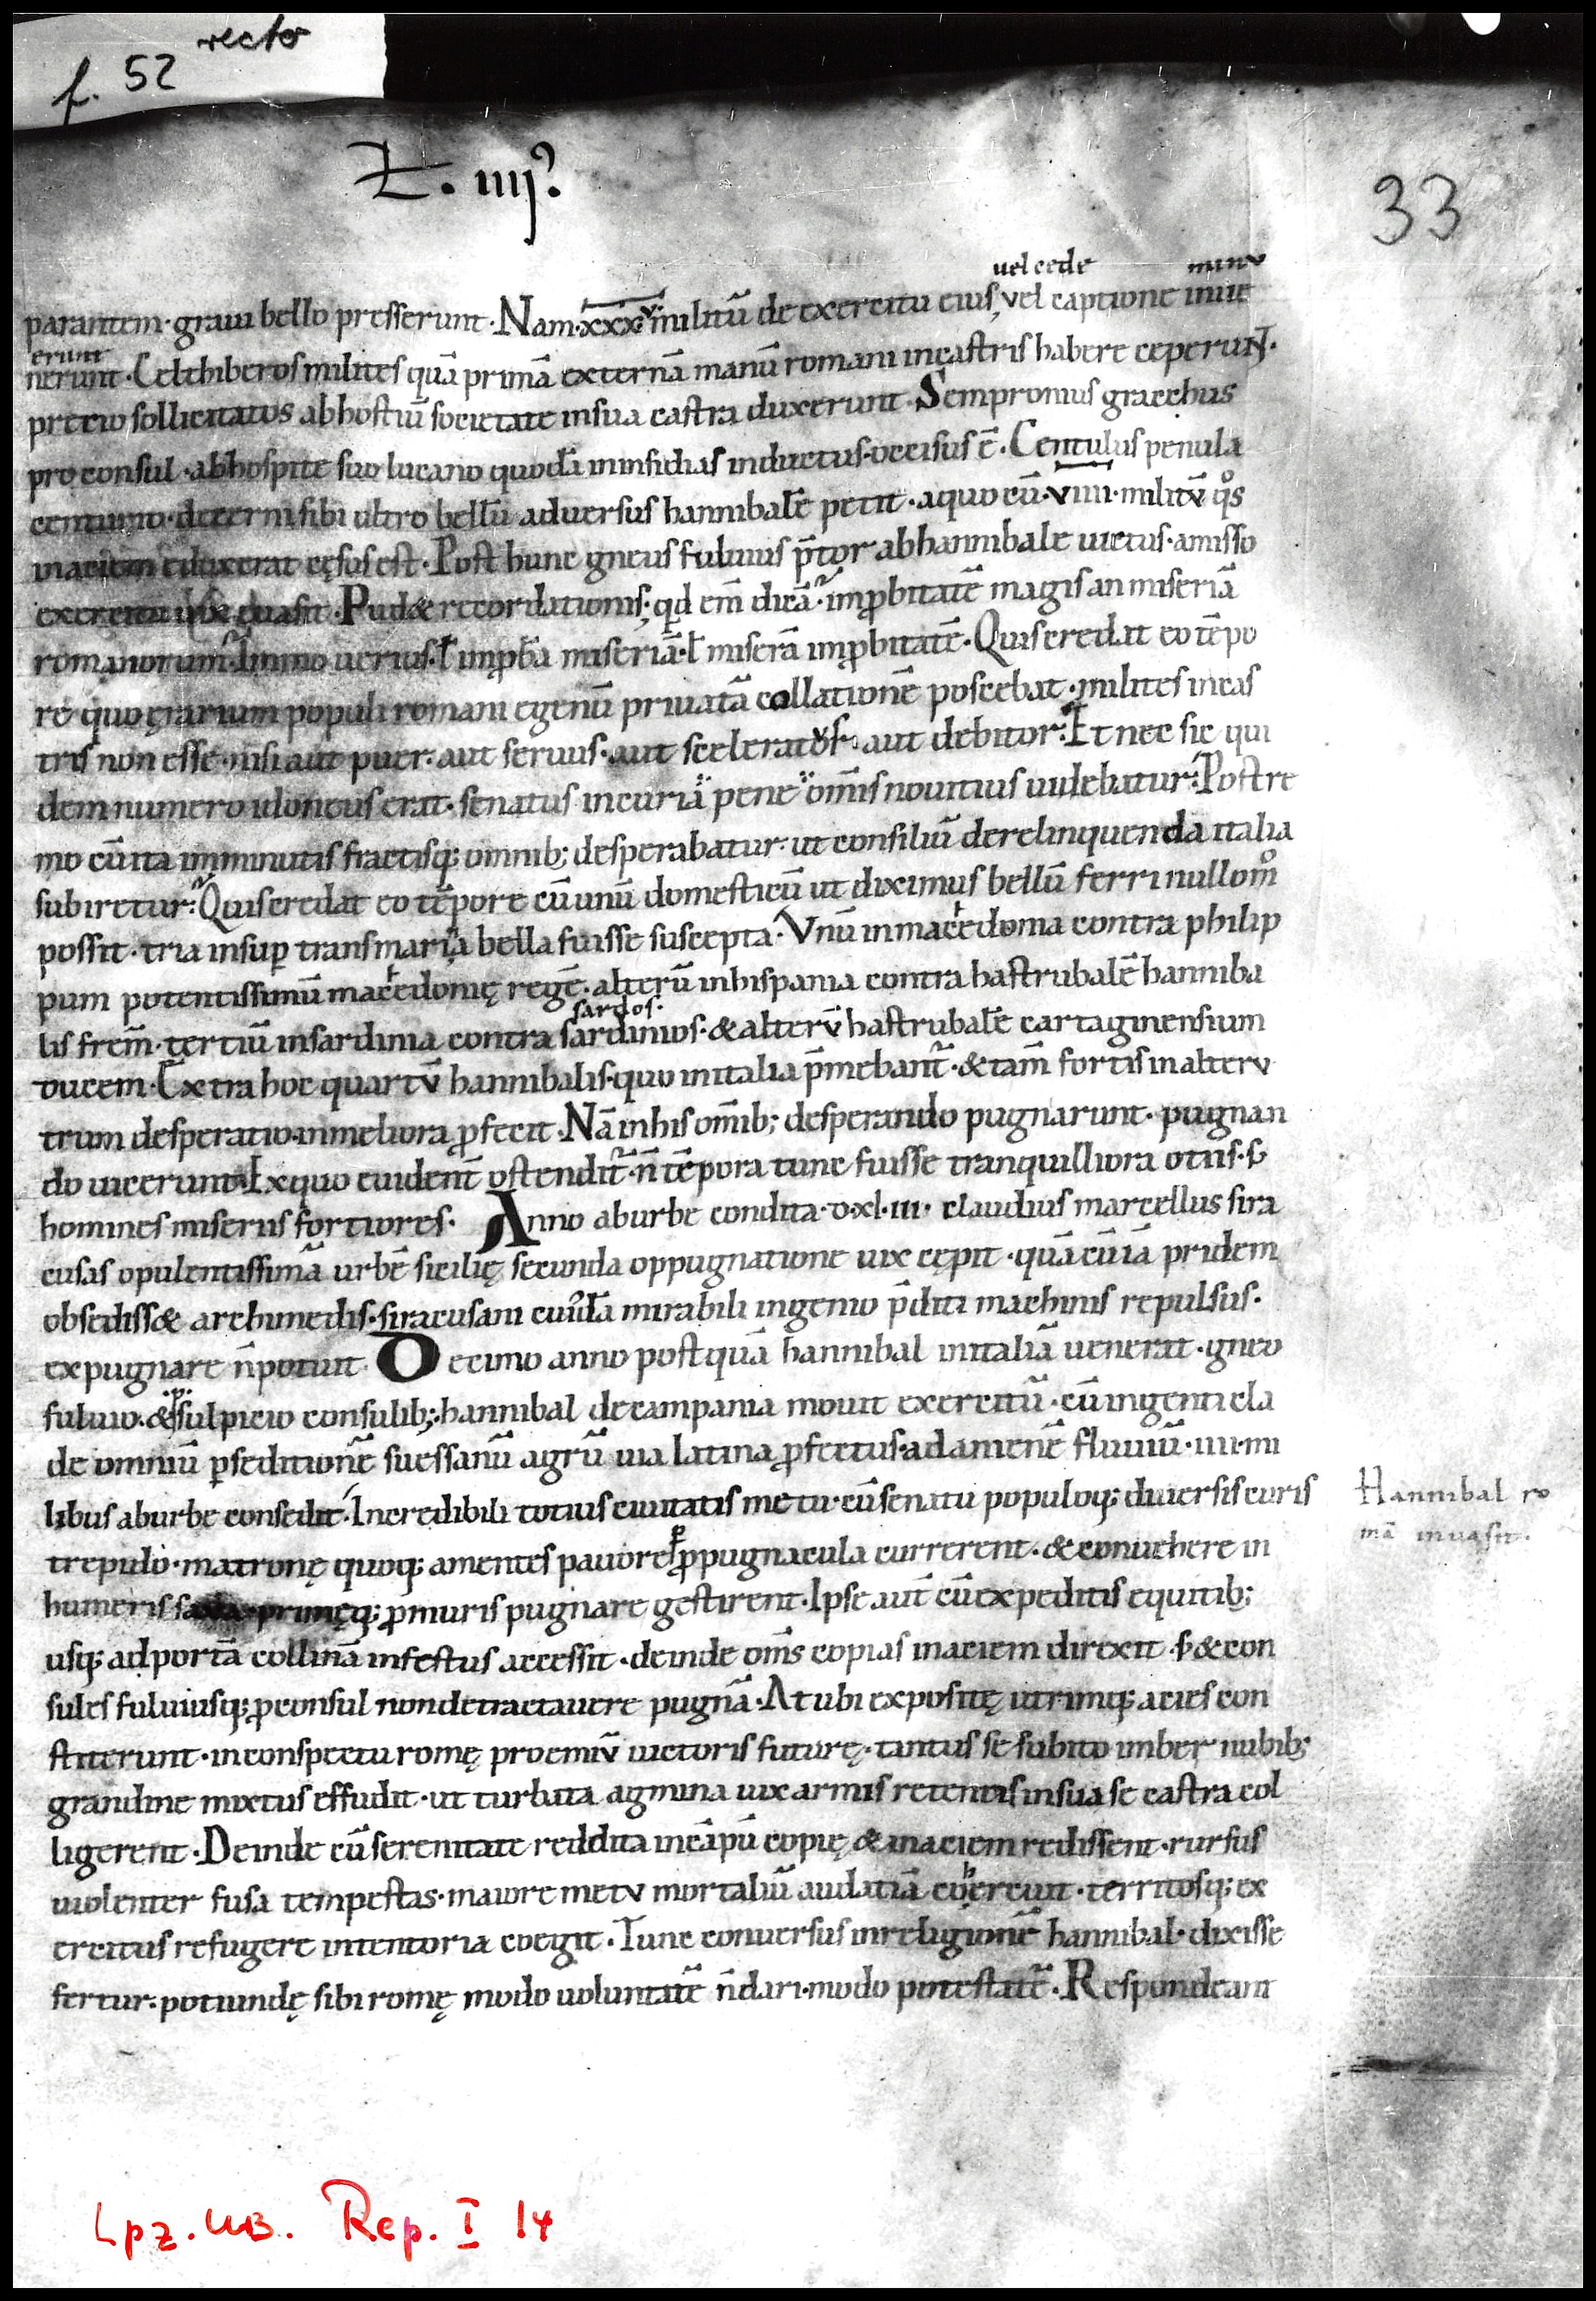 recto
f. 52
L. iiij?
33
uel cede minu
parantem· graui bello presserunt· Nam·xxxv· militũ de exercitu eius, vel captione inue
erunt
nerunt· Celthiberos milites quã primã externã manũ romani incastris habere ceperuNT·
pretio sollicitatos abhostiũ societate insua castra duxerunt· Sempronius gracchus
pro consul· abhospite suo lucano quodã ininsidias inductus· occisus ē· Centulus penula
centurio· decerni sibi ultro bellũ aduersus hannibalē petit· aquo cũ·viiii·militũ qͦs
inaciem eduxerat cęsus est· Post hunc gneus fuluius p̄tor abhannibale uictus· amisso
exercitu uix euasit· Pud& recordationis; qd em̄ dicã· improbitatē magis an miseriã
romanorum· Immo uerius· ł improbã miseriã· ł miserã improbitatē· Quis credat eo tēpo
re quo ęrarium populi romani egenũ priuatã collationē poscebat· milites incas
tris non esse· nisi aut puer· aut seruus· aut sceleratus· aut debitor· Et nec sic qui
dem numero idoneus erat· senatus incuriã pene om̄is nouitius uidebatur· Postre
mo cũ ita imminutis fractisq; omnib; desperabatur· ut consiliũ derelinquenda italia
subiretur· Quis credat eo tēpore cũ unũ domesticũ ut diximus bellũ ferri nullom̊
possit· tria insuꝑ transmarina bella fuisse suscepta· Vnũ inmacedonia contra philip
pum potentissimũ macedonię regē· alterũ inhispania contra hastrubalē hanniba
sardos·
lis frem̄· tertiũ insardinia contra sardinios· & alterũ hastrubalē cartaginensium
ducem· Extra hoc quartũ hannibalis· quo initalia p̄mebant̃· & tam̄ fortis inalteru
trum desperatio inmeliora ꝓfecit· Nã inhis om̄ib; desperando pugnarunt· pugnan
do uicerunt· Exquo euident̄ ostendit̃· n̄ tēpora tunc fuisse tranquilliora otiis· s;
homines miseriis fortiores· Anno aburbe condita·d·xl·iii· claudius marcellus sira
cusas opulentissimã urbē sicilię secunda oppugnatione uix cępit· quã cũ iã pridem
obsediss& archimedis· siracusani ciuis mirabili ingenio p̄diti machinis repulsus·
expugnare n̄ potuit· Decimo anno postquã hannibal initaliã uenerat· gneo
fuluio· & p· sulpicio consulib; hannibal decampania mouit exercitũ· cũ ingenti cla
de omniũ ꝑ seditionē suessanũ agrũ uia latina ꝓfectus· adamenē fluuiũ· iii·mi
libus aburbe consedit· Incredibili totius ciuitatis metu· cũ senatu populoq; diuersis curis
trepido· matronę quoq; amentes pauore ꝑ ꝓpugnacula currerent· & conuehere in
humeris saxa· primęq; ꝓ muris pugnare gestirent· Ipse aut̄ cũ expeditis equitib;
usq; adportã collinã infestus accessit· deinde om̄s copias inaciem direxit· s; & con
sules fuluiusq; ꝓconsul nondetractauere pugnã· At ubi expositę utrimq; acies con
stiterunt· inconspectu romę proemiũ uictoris futurę· tantus se subito imber nubib;
grandine mixtus effudit· ut turbata agmina uix armis retentis insua se castra col
ligerent· Deinde cũ serenitate reddita incãpũ copię & inaciem redissent· rursus
uiolenter fusa tempestas· maiore metu mortaliũ audatiã cohercuit· territosq; ex
ercitus refugere intentoria coegit· Tunc conuersus inreligionē hannibal· dixisse
fertur· potiundę sibi romę modo uoluntatē n̄ dari· modo potestatē· Respondeant
Hannibal ro
mã inuasit·
Lpz. UB. Rep. I 14